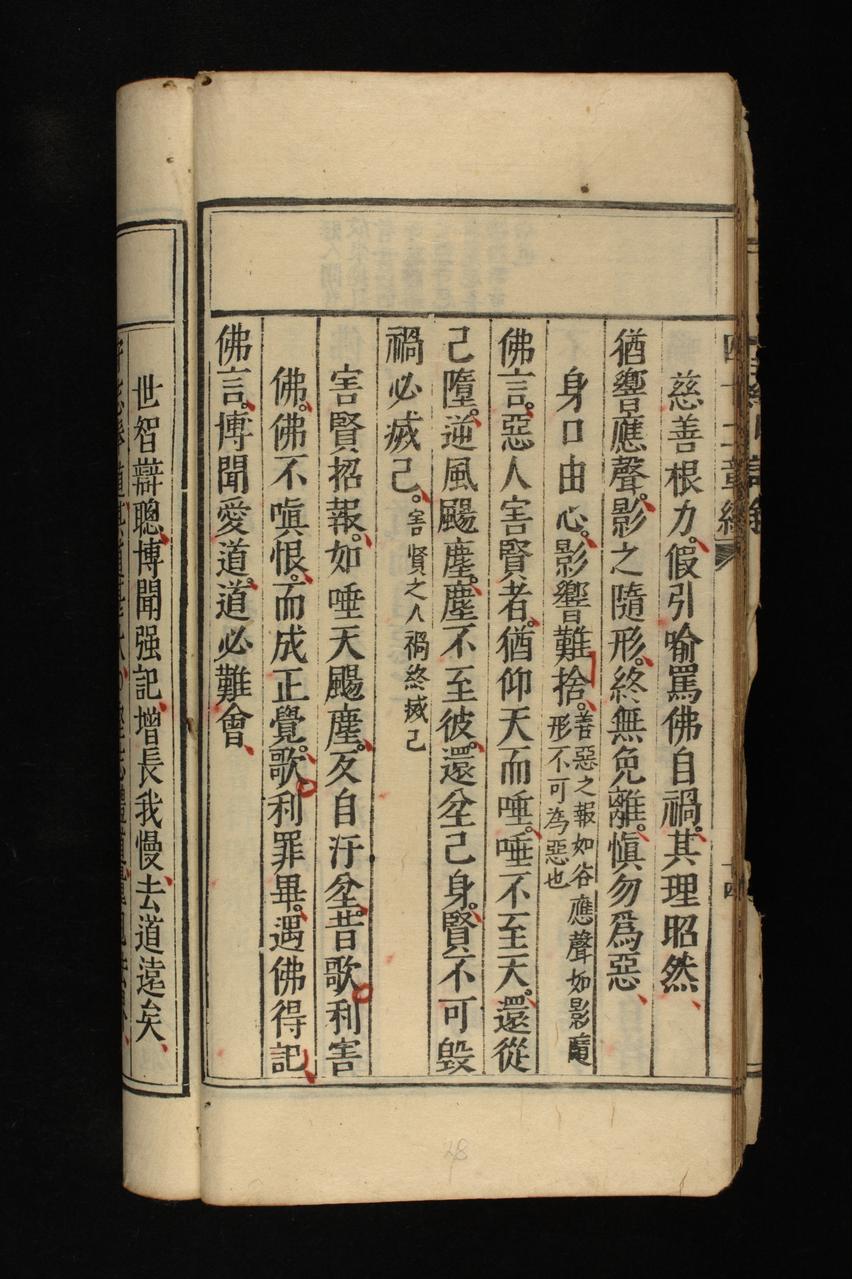 四十二章經
十四
慈善根力、假引喻罵佛自禍。其理昭然、
猶響應聲。影之隨形。終無免離。慎勿爲惡、
身口由心。影響難捨。善惡之報如谷應聲如影隨
形不可為惡也
佛言。惡人害賢者。猶仰天而唾。唾不至天。還從
己墮。逆風颺塵。塵不至彼。還坌己身。賢不可毀
禍必滅己。害賢之人禍終㓕己
害賢招報。如唾天颺塵。反自汙坌。昔歌利害
佛。佛不嗔恨。而成正覺。歌利罪畢。遇佛得記、
佛言。博聞愛道。道必難會、
世智辯聰、博聞强記、增長我慢、去道遠矣、
28